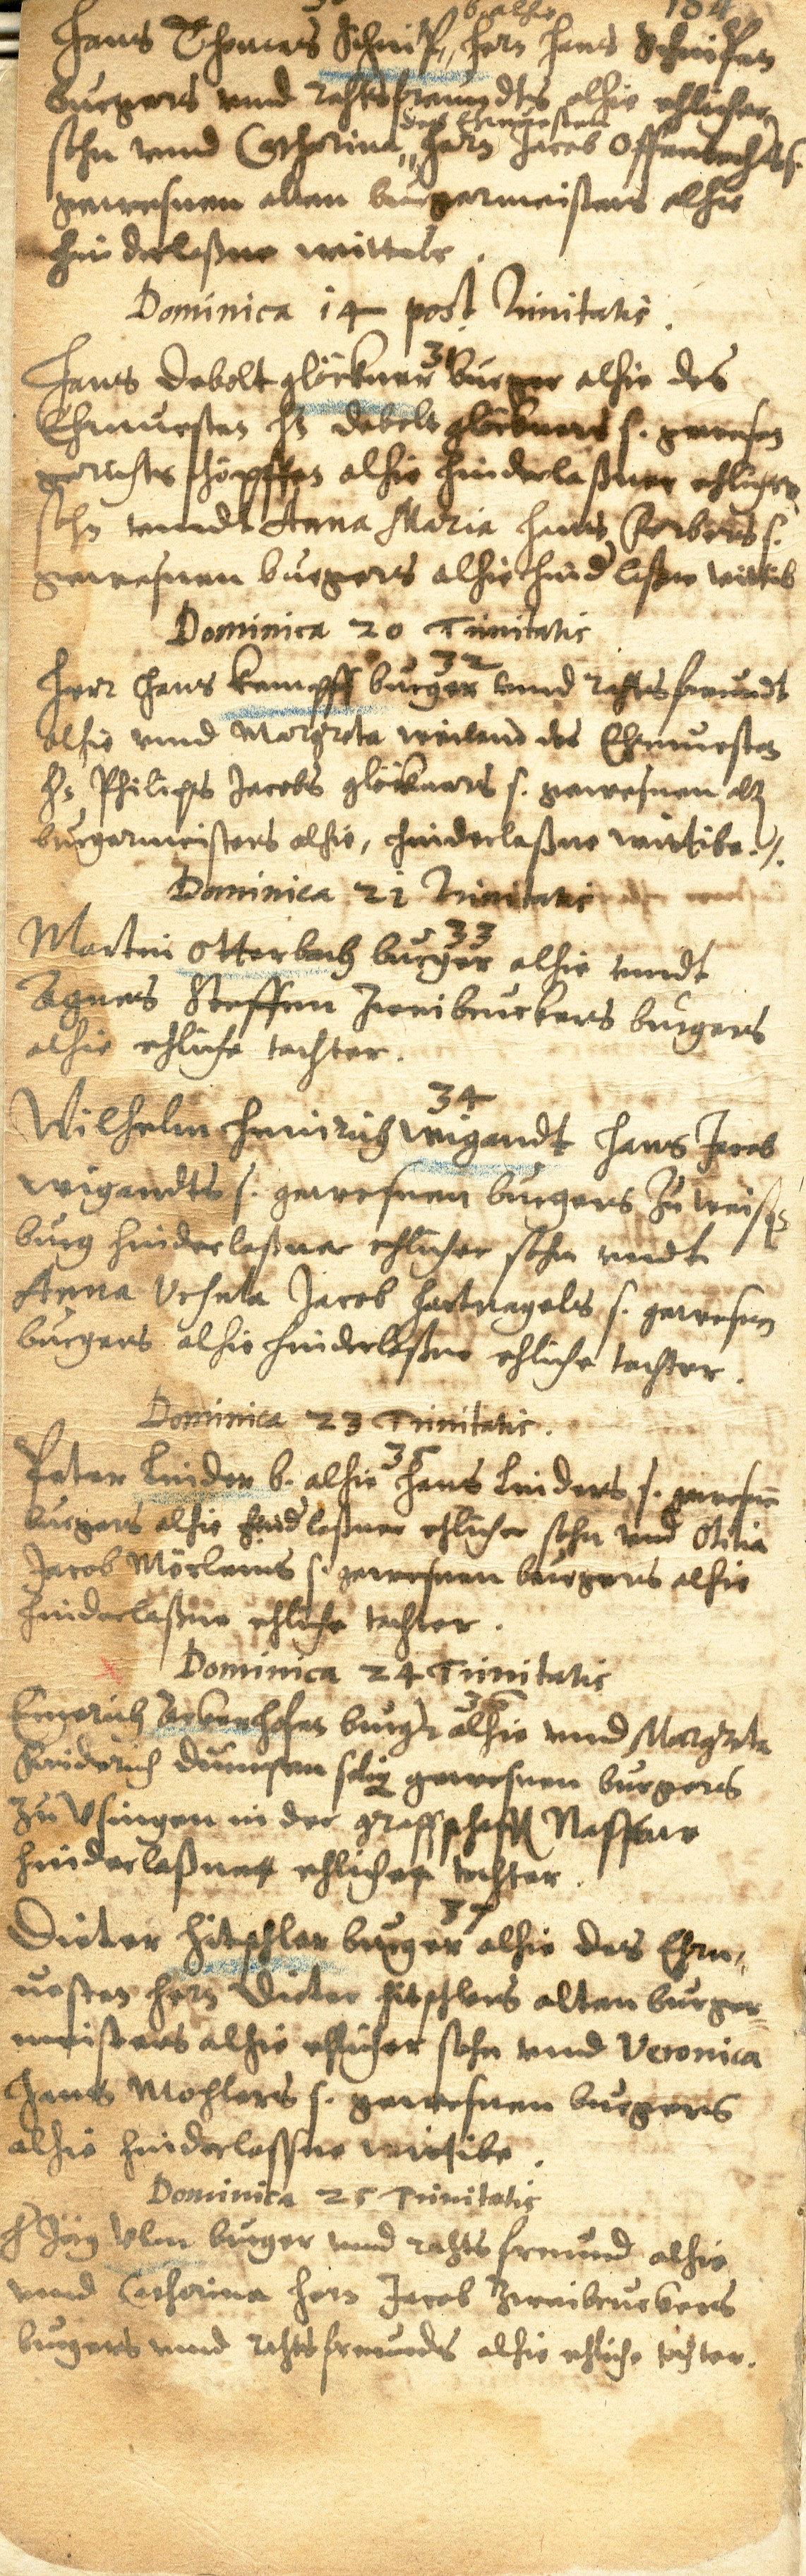 b. alhie 184
Hans Thomas Schnüf,, hern Hans Schnüfen
burgers vnnd rahtsfreundts alhie ehlicher
des Ehrnuesten
sohn vnnd Catharina,, hern Jacob Offenbachs s.
gewesnen alten burgermeisters alhie
hinderlaßne wittibe.
Dominica 14 post Trinitatis.
31
Hans Debolt glöckner burger alhie des
Ehrnuesten H. Debolt glöckners s. gewesen
gerichts schöpffen alhie hinderlaßner ehlicher
sohn vnndt Anna Maria Hans Kerbers s.
gewesnen burgers alhie hind'laßne wittib
Dominica 20 Trinitatis
32
Herr Hans Kempff burger vnnd rahtsfreundt
alhie vnnd Margreta weiland des Ehrnuesten
H. Philips Jacobs glöckners s. gewesnen alt
burgermeisters alhie, hinderlaßne wittibe./.
Dominica 21 Trinitatis
33
Martin Otterbach burger alhie vnndt
Agnes Steffen Zweibruckers burgers
alhie ehliche tochter.
34
Wilhelm Heinrich Wigandt Hans Jacob
Wigandts s. gewesnen burgers zu Weiss
burg hinderlaßner ehlicher sohn vndt
Anna Vrsula Jacob Hartnagels s. gewesnen
burgers alhie hinderlaßne ehliche tochter.
Dominica 23 Trinitatis.
35
Peter Linder b. alhie Hans Linders s. gewesnen
burgers alhie hind'laßner ehlicher sohn vnd Otilia
Jacob Mörleins s. gewesnen burgers alhie
hinderlaßne ehliche tochter.
Dominica 24 Trinitatis
36
Emerich Beckenhofen burger alhie vnnd Margreta
Friderich selig gewesnen burgers
zu Vsingen in der graffschafft Nassaw
hinderlaßne ehliche tochter.
37
Dieter Hitschler burger alhie des Ehrn,,
uesten hern Dieter Hitschlers alten burger=
meisters alhie ehlicher sohn vnnd Veronica
Hans Mohlers s. gewesnen burgers
alhie hinderlassne wittibe.
Dominica 25 Trinitatis
H. Jörg Vlm burger vnnd rahtsfreund alhie
vnnd Catharina hern Jacob Zweibruckers
burgers vnnd rahtsfreunds alhie ehliche tochter.